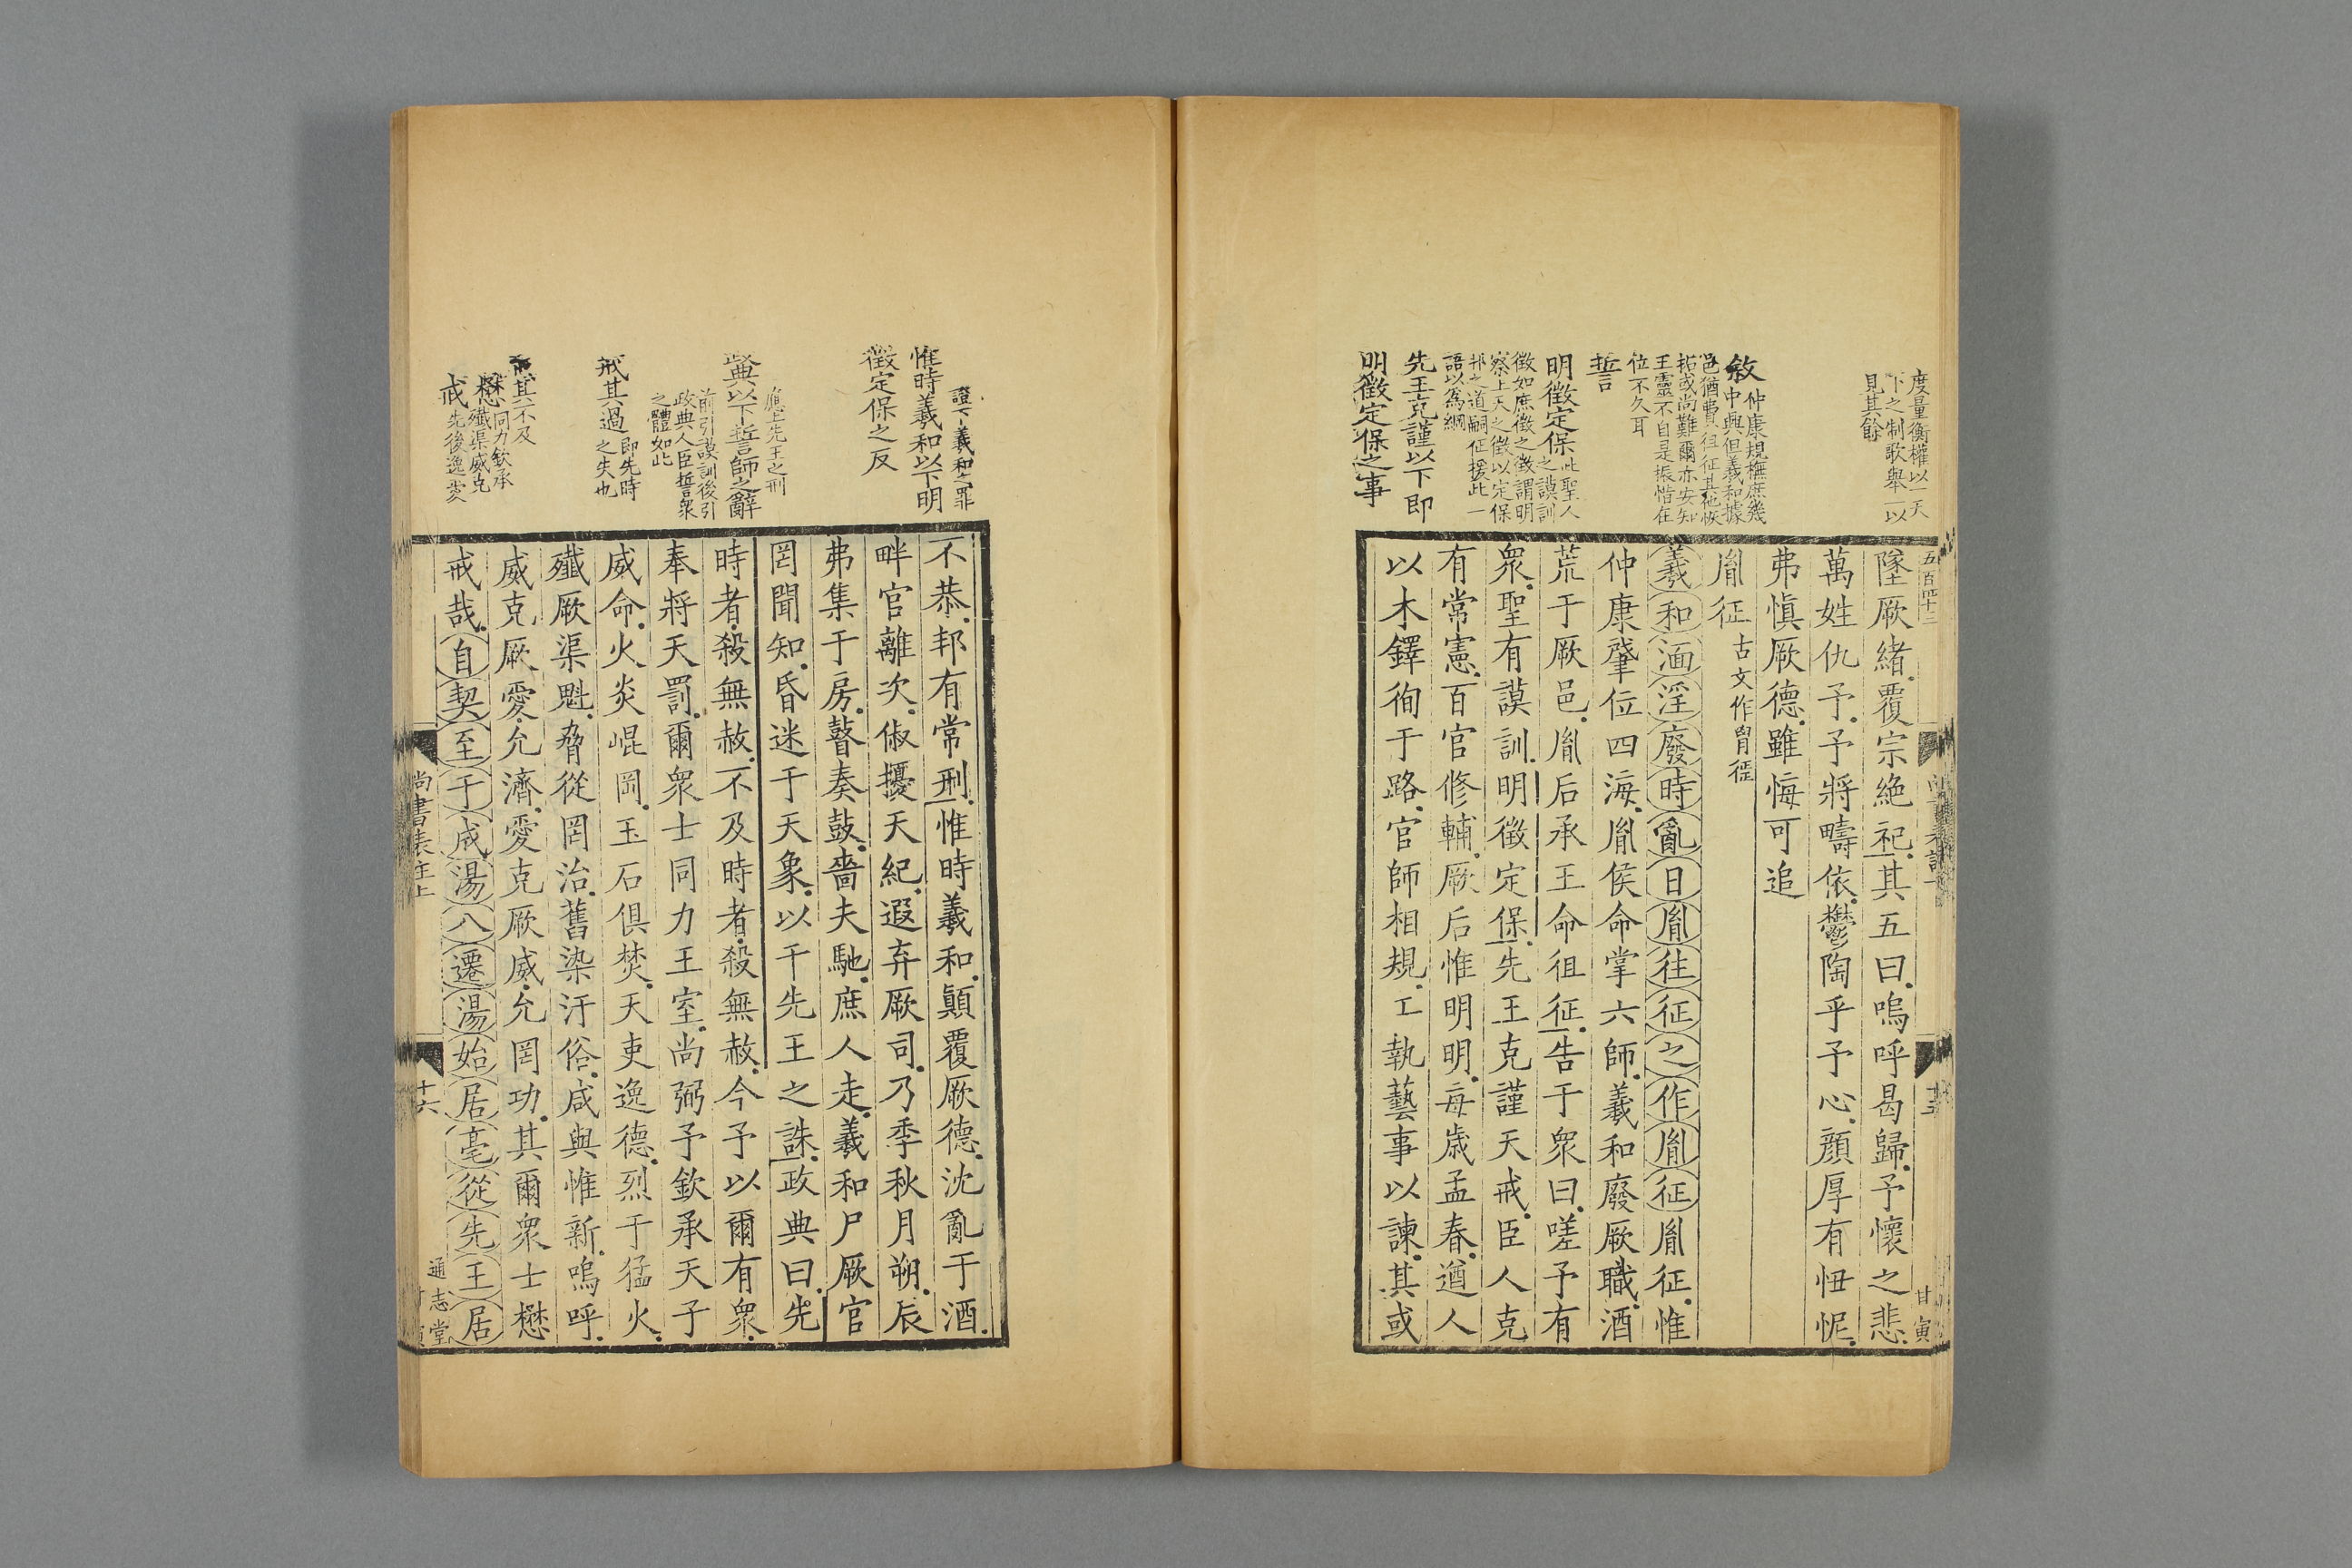 度量衡權以一天
下之制歌舉一以
見其餘
敘
仲康規橅庶幾
中興但羲和據
邑猶費徂征其他恢
拓或尚難爾亦安知
王靈不自是振惜在
位不久耳
誓
明徵定保
此聖人
之謨訓
徵如庶徵之徵謂明
察上天之徵以定保
邦之道嗣征援此一
語以為綱
先王克謹以下即
明徵定保之事
五百四十三
墜厥緒覆宗絶祀其五曰嗚呼曷歸予懷之悲
萬姓仇予予將疇依鬱陶乎予心顔厚有忸怩
弗愼厥德雖悔可追
胤征 古文作𦙍征
羲和湎淫廢時亂日胤往征之作胤征胤征惟
仲康肈位四海胤侯命掌六師羲和廢厥職酒
荒于厥邑胤后承王命徂征告于衆曰嗟予有
衆聖有謨訓明徵定保先王克謹天戒臣人克
有常憲百官修輔厥后惟明明每歳孟春遒人
以木鐸徇于路官師相規工執藝事以諫其或
甘寅
證下羲和之罪
惟時羲和以下明
徵定保之反
應上先王之刑
政典以下誓師之辭
前引謨訓後引
政典人臣誓衆
之體如此
戒其過
即先時
之失也
戒其不及
懋
同力欽承
殲渠威克
戒
先後逸愛
不恭邦有常刑惟時羲和顛覆厥德沈亂于酒
畔官離次俶擾天紀遐弃厥司乃季秋月朔辰
弗集于房瞽奏鼓嗇夫馳庶人走羲和尸厥官
罔聞知昏迷于天象以干先王之誅政典曰先
時者殺無赦不及時者殺無赦今予以爾有衆
奉將天罰爾衆士同力王室尚弼予欽承天子
威命火炎崐岡玉石俱焚天吏逸德烈于猛火
殲厥渠魁脅從罔治舊染汙俗咸與惟新嗚呼
威克厥愛允濟愛克厥威允罔功其爾衆士懋
戒哉自契至于成湯八遷湯始居亳從先王居
尚書表注上
十六
通志堂